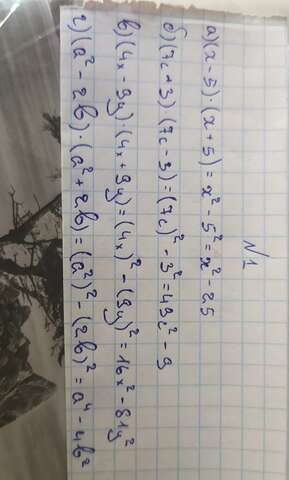 N1
а) (x - 5) · (x + 5) = x² - 5² = x² - 25
б) (7c + 3) (7c - 3) = (7c)² - 3² = 49c² - 9
в) (4x - 9y) · (4x + 9y) = (4x)² - (9y)² = 16x² - 81y²
г) (a² - 2b) · (a² + 2b) = (a²)² - (2b)² = a⁴ - 4b²